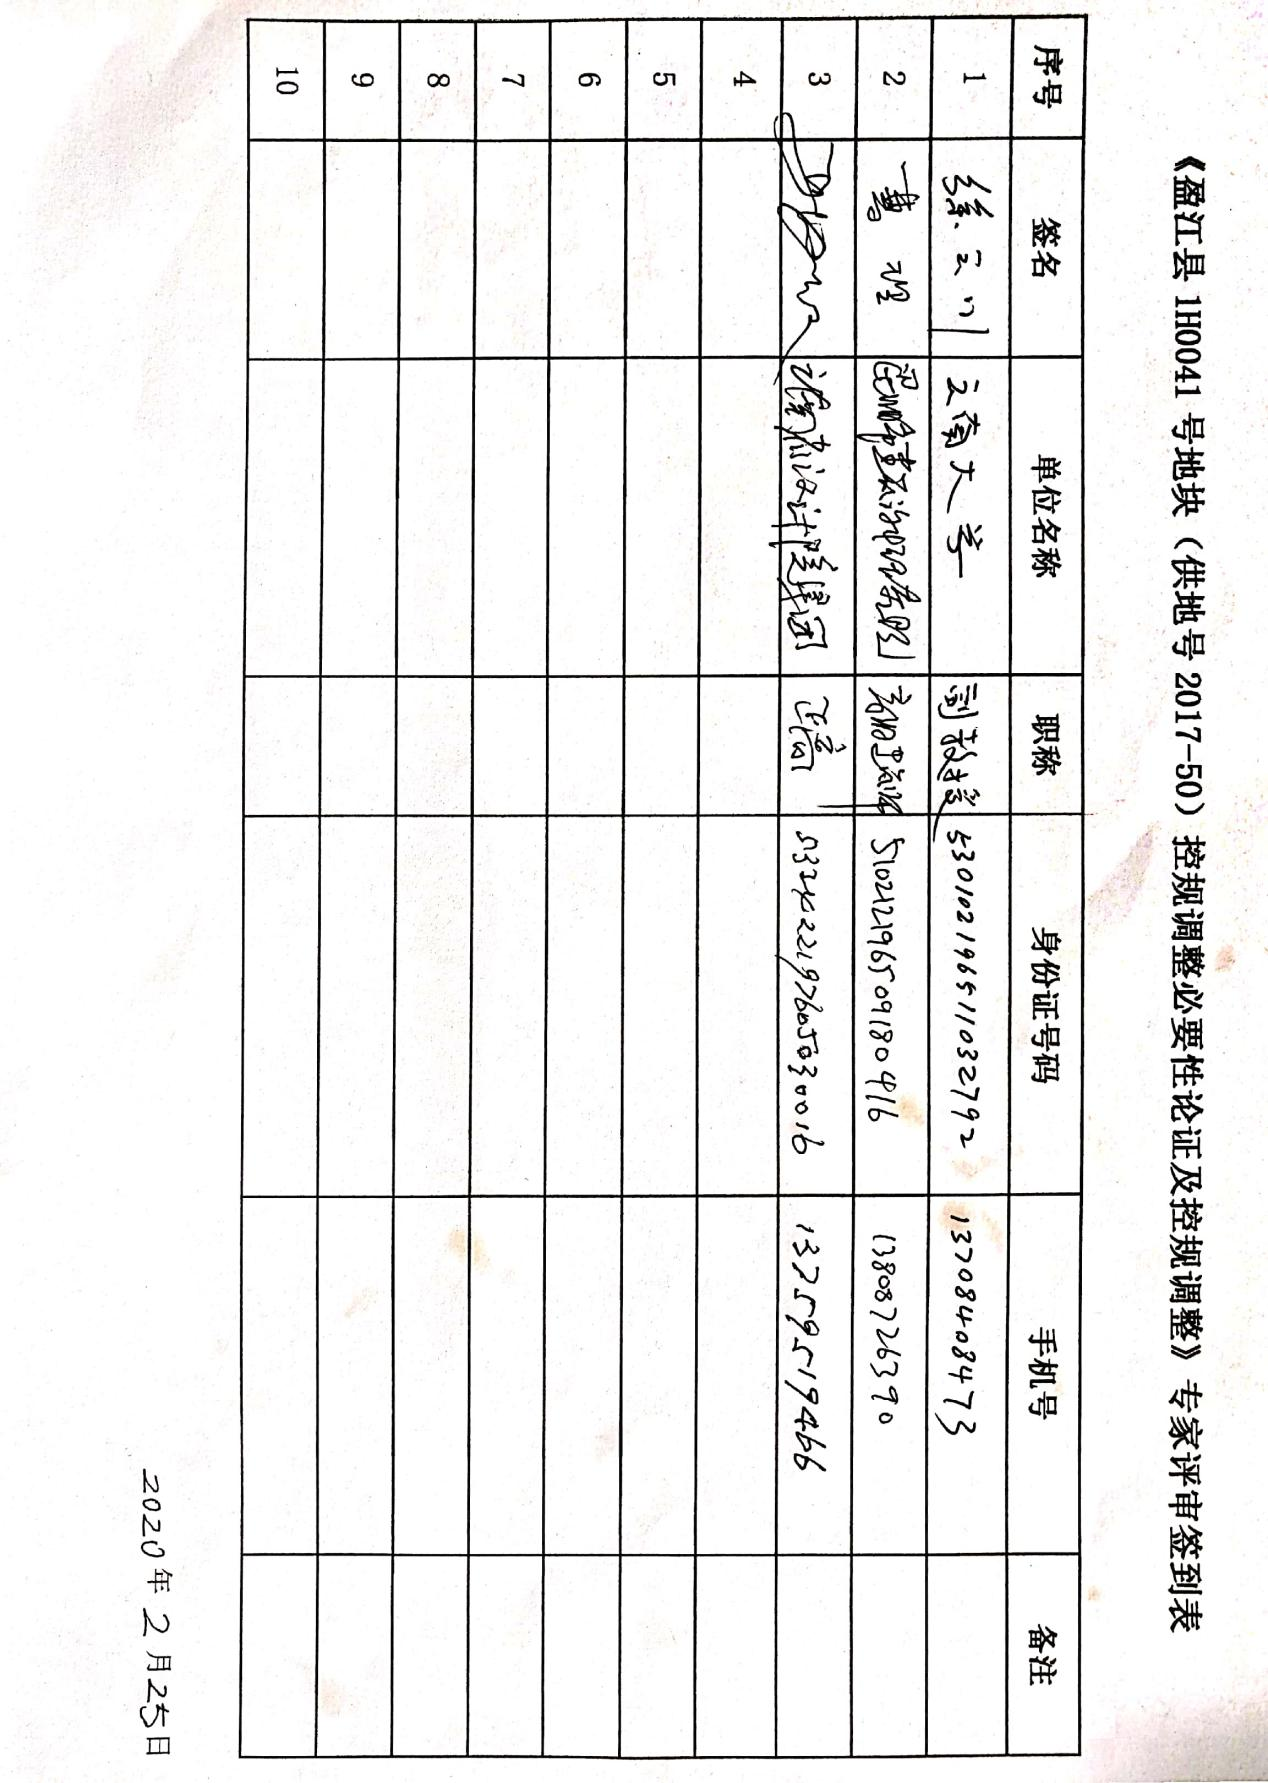 《盈江县 1H0041 号地块（供地号 2017-50）控规调整必要性论证及控规调整》专家评审签到表
序号 签名 单位名称 职称 身份证号码 手机号 备注
1 徐云川 云南大学 副教授 530102196511032792 13708408473
2 510212196509180416 13808726390
3 设计院集团 正高 532422197605030016 13759519466
4
5
6
7
8
9
10
2020年2月25日